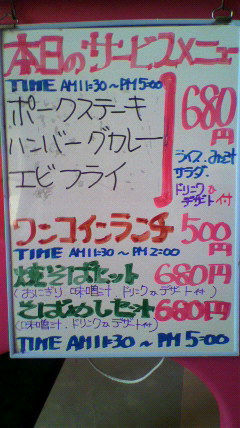 本日のサービスメニュー
TIME AM11:30～PM5:00
ポークステーキ
ハンバーグカレー
エビフライ
680円
ライス・みそ汁
サラダ
ドリンク&
デザート付
ワンコインランチ 500円
TIME AM11:30～PM2:00
焼そばセット 680円
(おにぎり.味噌汁.ドリンク&デザート付)
そばめしセット 680円
(味噌汁.ドリンク&デザート付)
TIME AM11:30～PM5:00